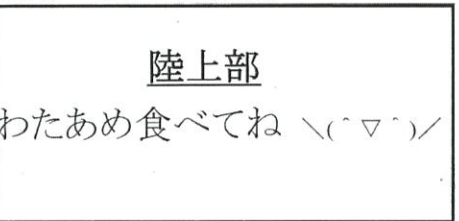 陸上部
わたあめ食べてね ＼(＾▽＾)／